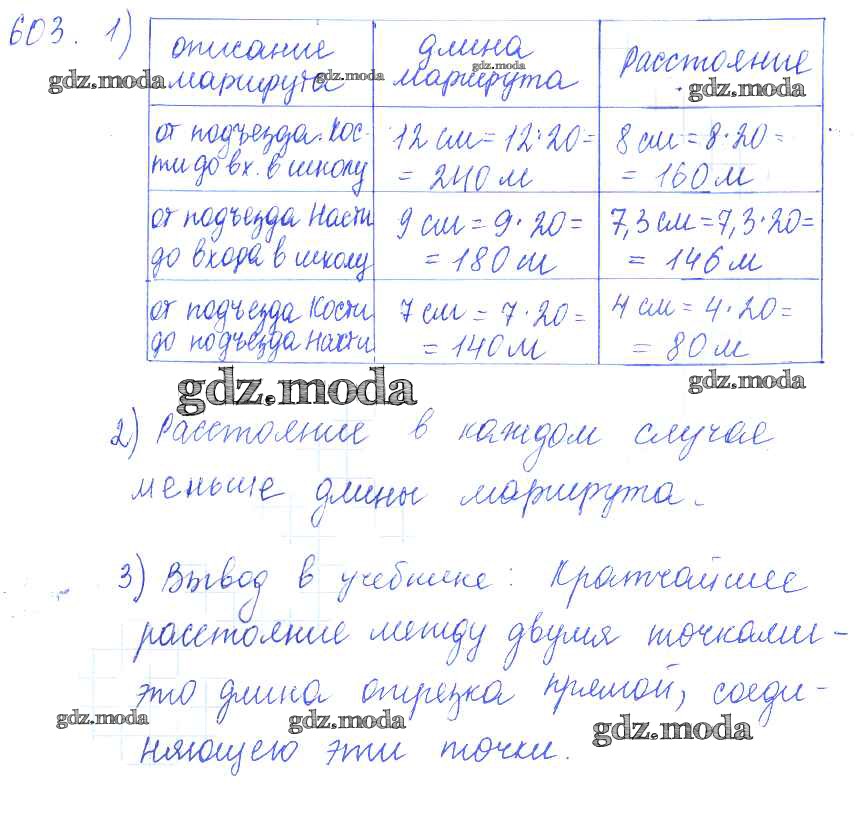 603. 1)
описание маршрута
длина маршрута
Расстояние
gdz.moda
gdz.moda
gdz.moda
gdz.moda
от подъезда Кос-
ти до вх. в школу
12 см = 12·20 =
= 240 м
8 см = 8·20 =
= 160 м
от подъезда Насти
до входа в школу
9 см = 9·20 =
= 180 м
7,3 см = 7,3·20 =
= 146 м
от подъезда Кости
до подъезда Насти
7 см = 7·20 =
= 140 м
4 см = 4·20 =
= 80 м
gdz.moda
gdz.moda
2) Расстояние в каждом случае
меньше длины маршрута.
3) Вывод в учебнике: Кратчайшее
расстояние между двумя точками -
это длина отрезка прямой, соеди-
няющего эти точки.
gdz.moda
gdz.moda
gdz.moda